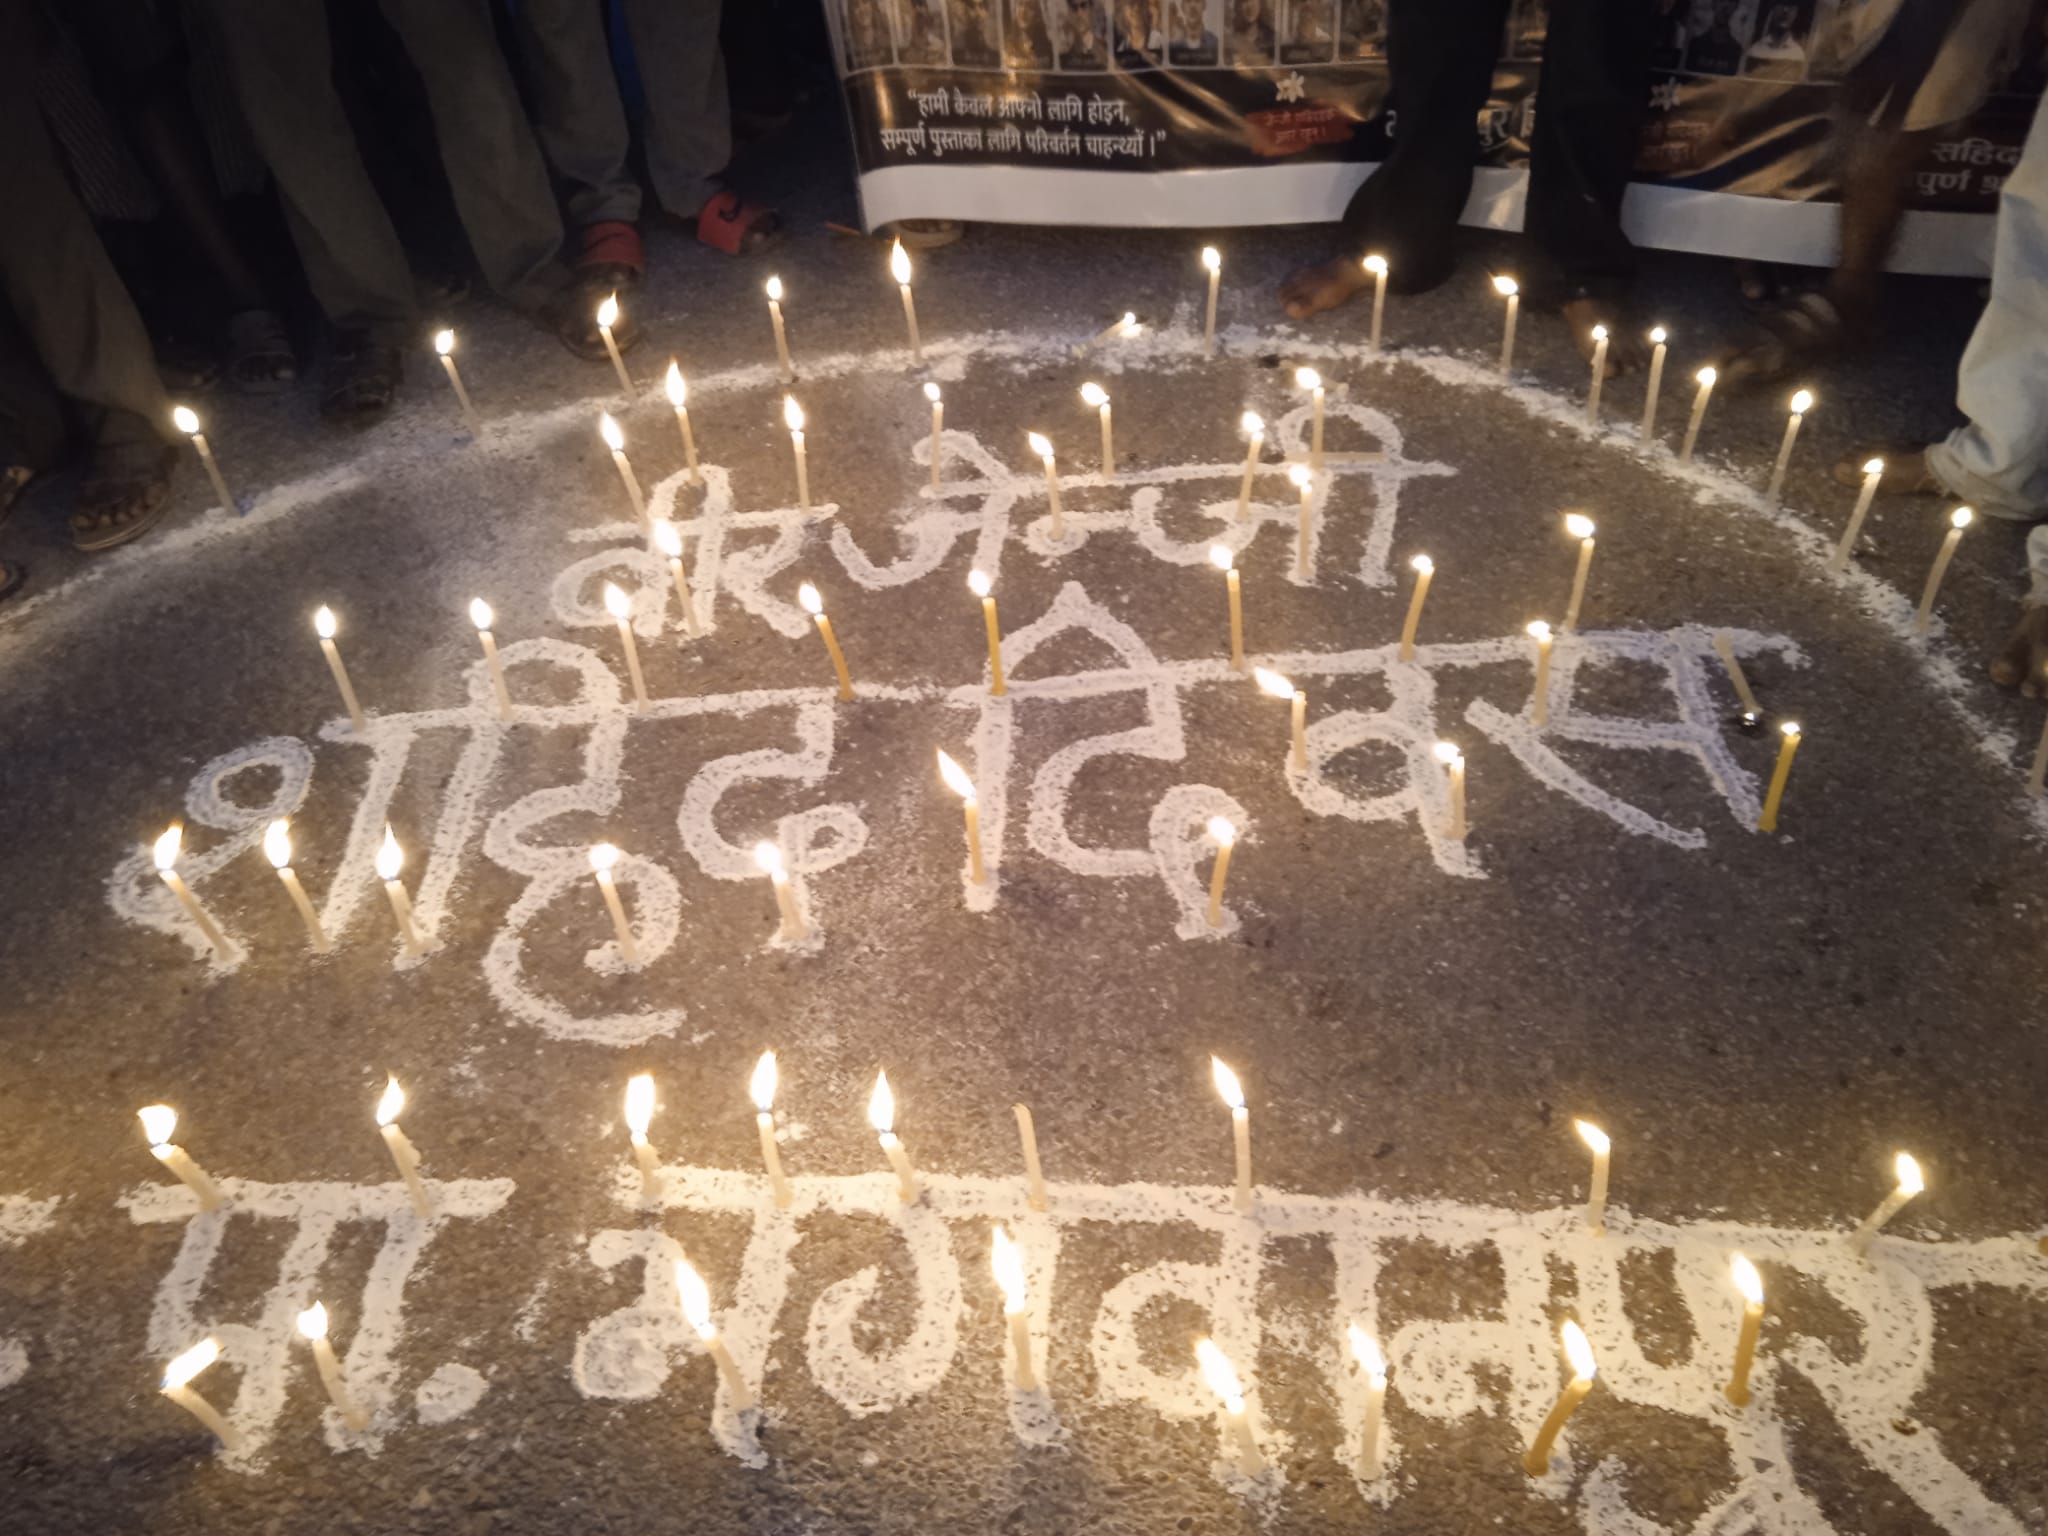 “हामी केवल आफ्नो लागि होइन,
सम्पूर्ण पुस्ताका लागि परिवर्तन चाहन्थ्यौं ।”
वीर जेन्जी
शहिद दिवस
पा. भगवानपुर